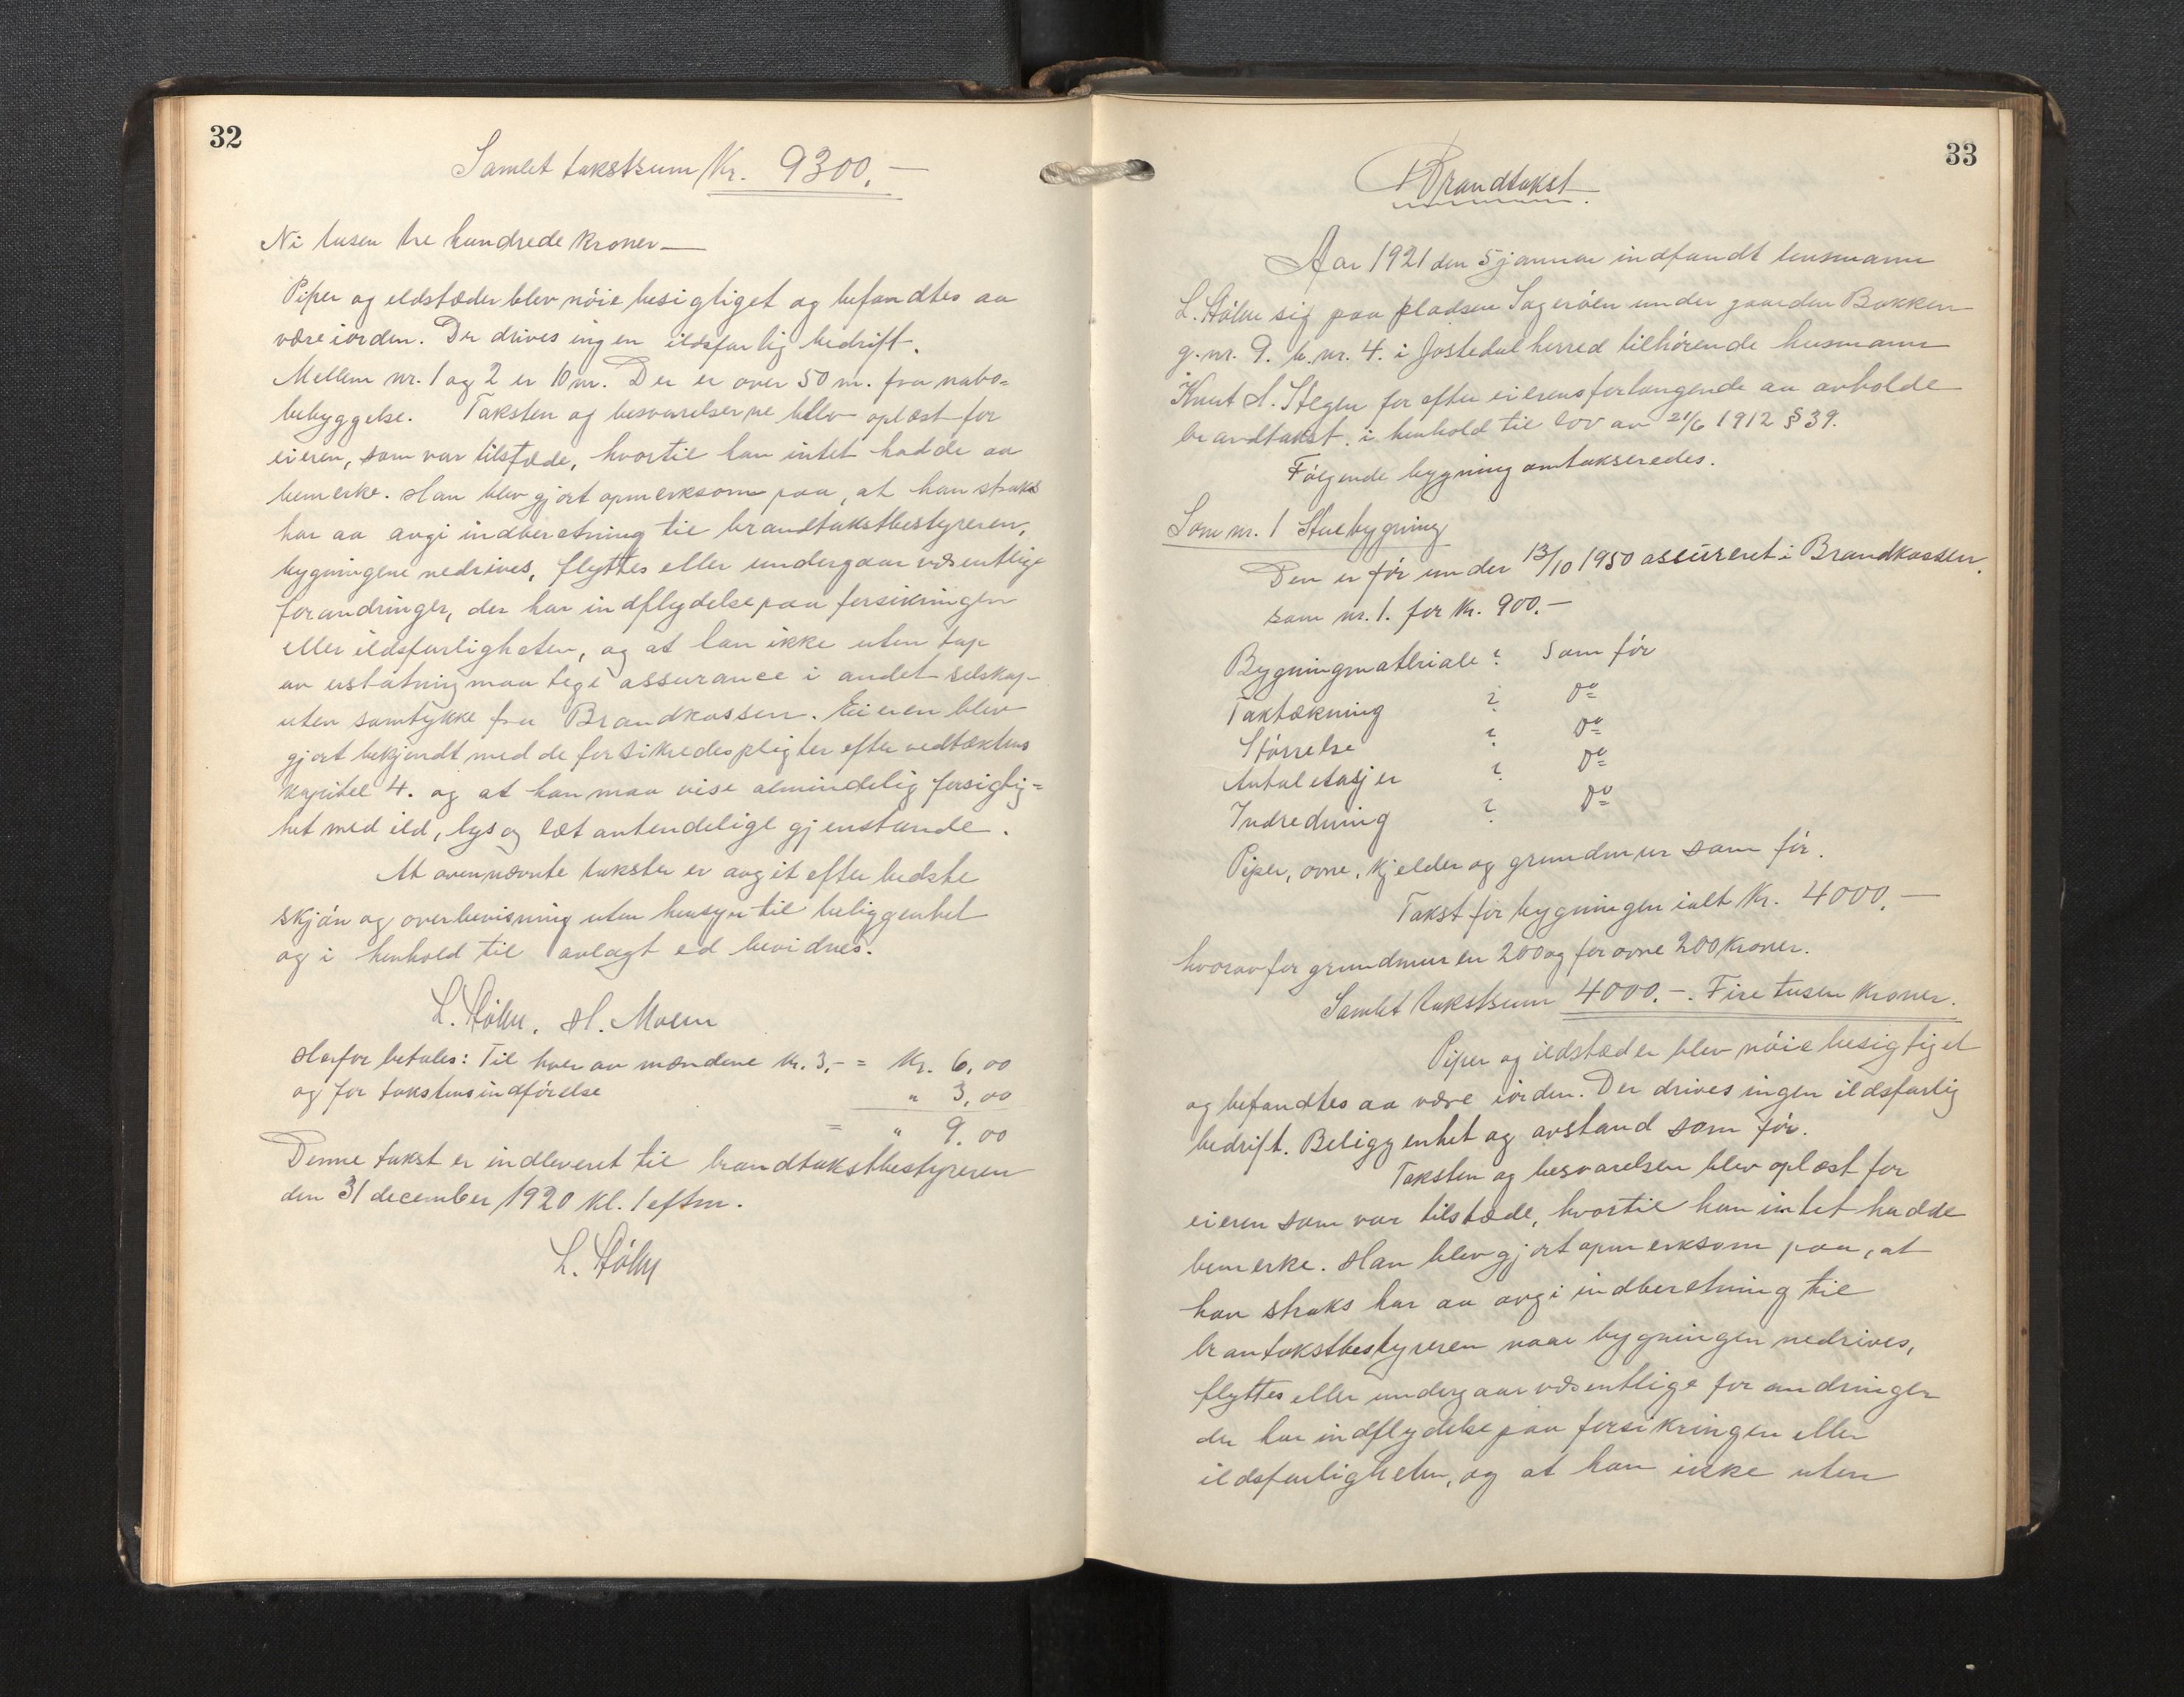 32
Samlet takstsum Kr. 9300.—
Ni tusen tre hundrede kroner—
Piper og ildstæder blev nöie besigtiget og befandtes aa
være iorden. Der drives ingen ildsfarlig bedrift.
Mellem nr. 1 og 2 er 10 m. Der er over 50 m. fra nabo-
bebyggelse. Taksten og besvarelserne blev oplæst for
eieren, som var tilstæde, hvortil han intet hadde aa
bemerke. Han blev gjort opmerksom paa, at han straks
har aa avgi indberetning til brandtakstbestyreren,
bygningene nedrives, flyttes eller undergaar væsentlige
forandringer, der har indflydelse paa forsikringen
eller ildsfarligheten, og at han ikke uten tap
av erstatning maa tegi assurance i andet selskap
uten samtykke fra Brandkassen. Eieren blev
gjort bekjendt med de forsikredes pligter efter vedtæktens
kapitel 4. og at han maa vise almindelig forsigtig-
het med ild, lys og læt antendelige gjenstande.
At ovennævnte takster er avgit efter bedste
skjön og overbevisning uten hensyn til beliggenhet
og i henhold til avlagt ed bevidnes.
L. Höln. H. Moen
Herfor betales: Til hver av mændene kr. 3,- = Kr. 6,00
og for takstens indförelse " 3,00
= " 9.00
Denne takst er indleveret til brandtakstbestyreren
den 31 december 1920 kl. 1 eftm.
L. Höln
33
Brandtakst.
Aar 1921 den 5 januar indfandt lensmann
L. Höln sig paa pladsen Sageröen under gaarden Bakken
g.nr. 9. b.nr. 4. i Jostedal herred tilhörende husmann
Knut A. Stegen for efter eierens forlangende aa avholde
brandtakst. i henhold til lov av 21/6 1912 § 39.
Fölgende bygning omtakseredes.
Som nr. 1 Stuebygning
Den er för under 13/10 1950 assureret i Brandkassen.
som nr. 1. for kr. 900.—
Bygningmatriale ? Som för
Taktækning ? Do
Störrelse ? Do
Antal etasjer ? Do
Indredning ? Do
Piper, ovne, kjelder og grundmur som för.
Takst for bygningen ialt kr. 4000.—
hvorav for grundmuren 200 og for ovne 200 kroner.
Samlet takstsum 4000.-. Fire tusen kroner.
Piper og ildstæder blev nöie besigtiget
og befandtes aa være iorden. Der drives ingen ildsfarlig
bedrift. Beliggenhet og avstand som för.
Taksten og besvarelsen blev oplæst for
eieren som var tilstæde, hvortil han intet hadde
bemerke. Han blev gjort opmerksom paa, at
han straks har aa avgi indberetning til
brantakstbestyreren naar bygningen nedrives,
flyttes eller undergaar væsentlige forandringer
der har indflydelse paa forsikringen eller
ildsfarligheten, og at han ikke uten